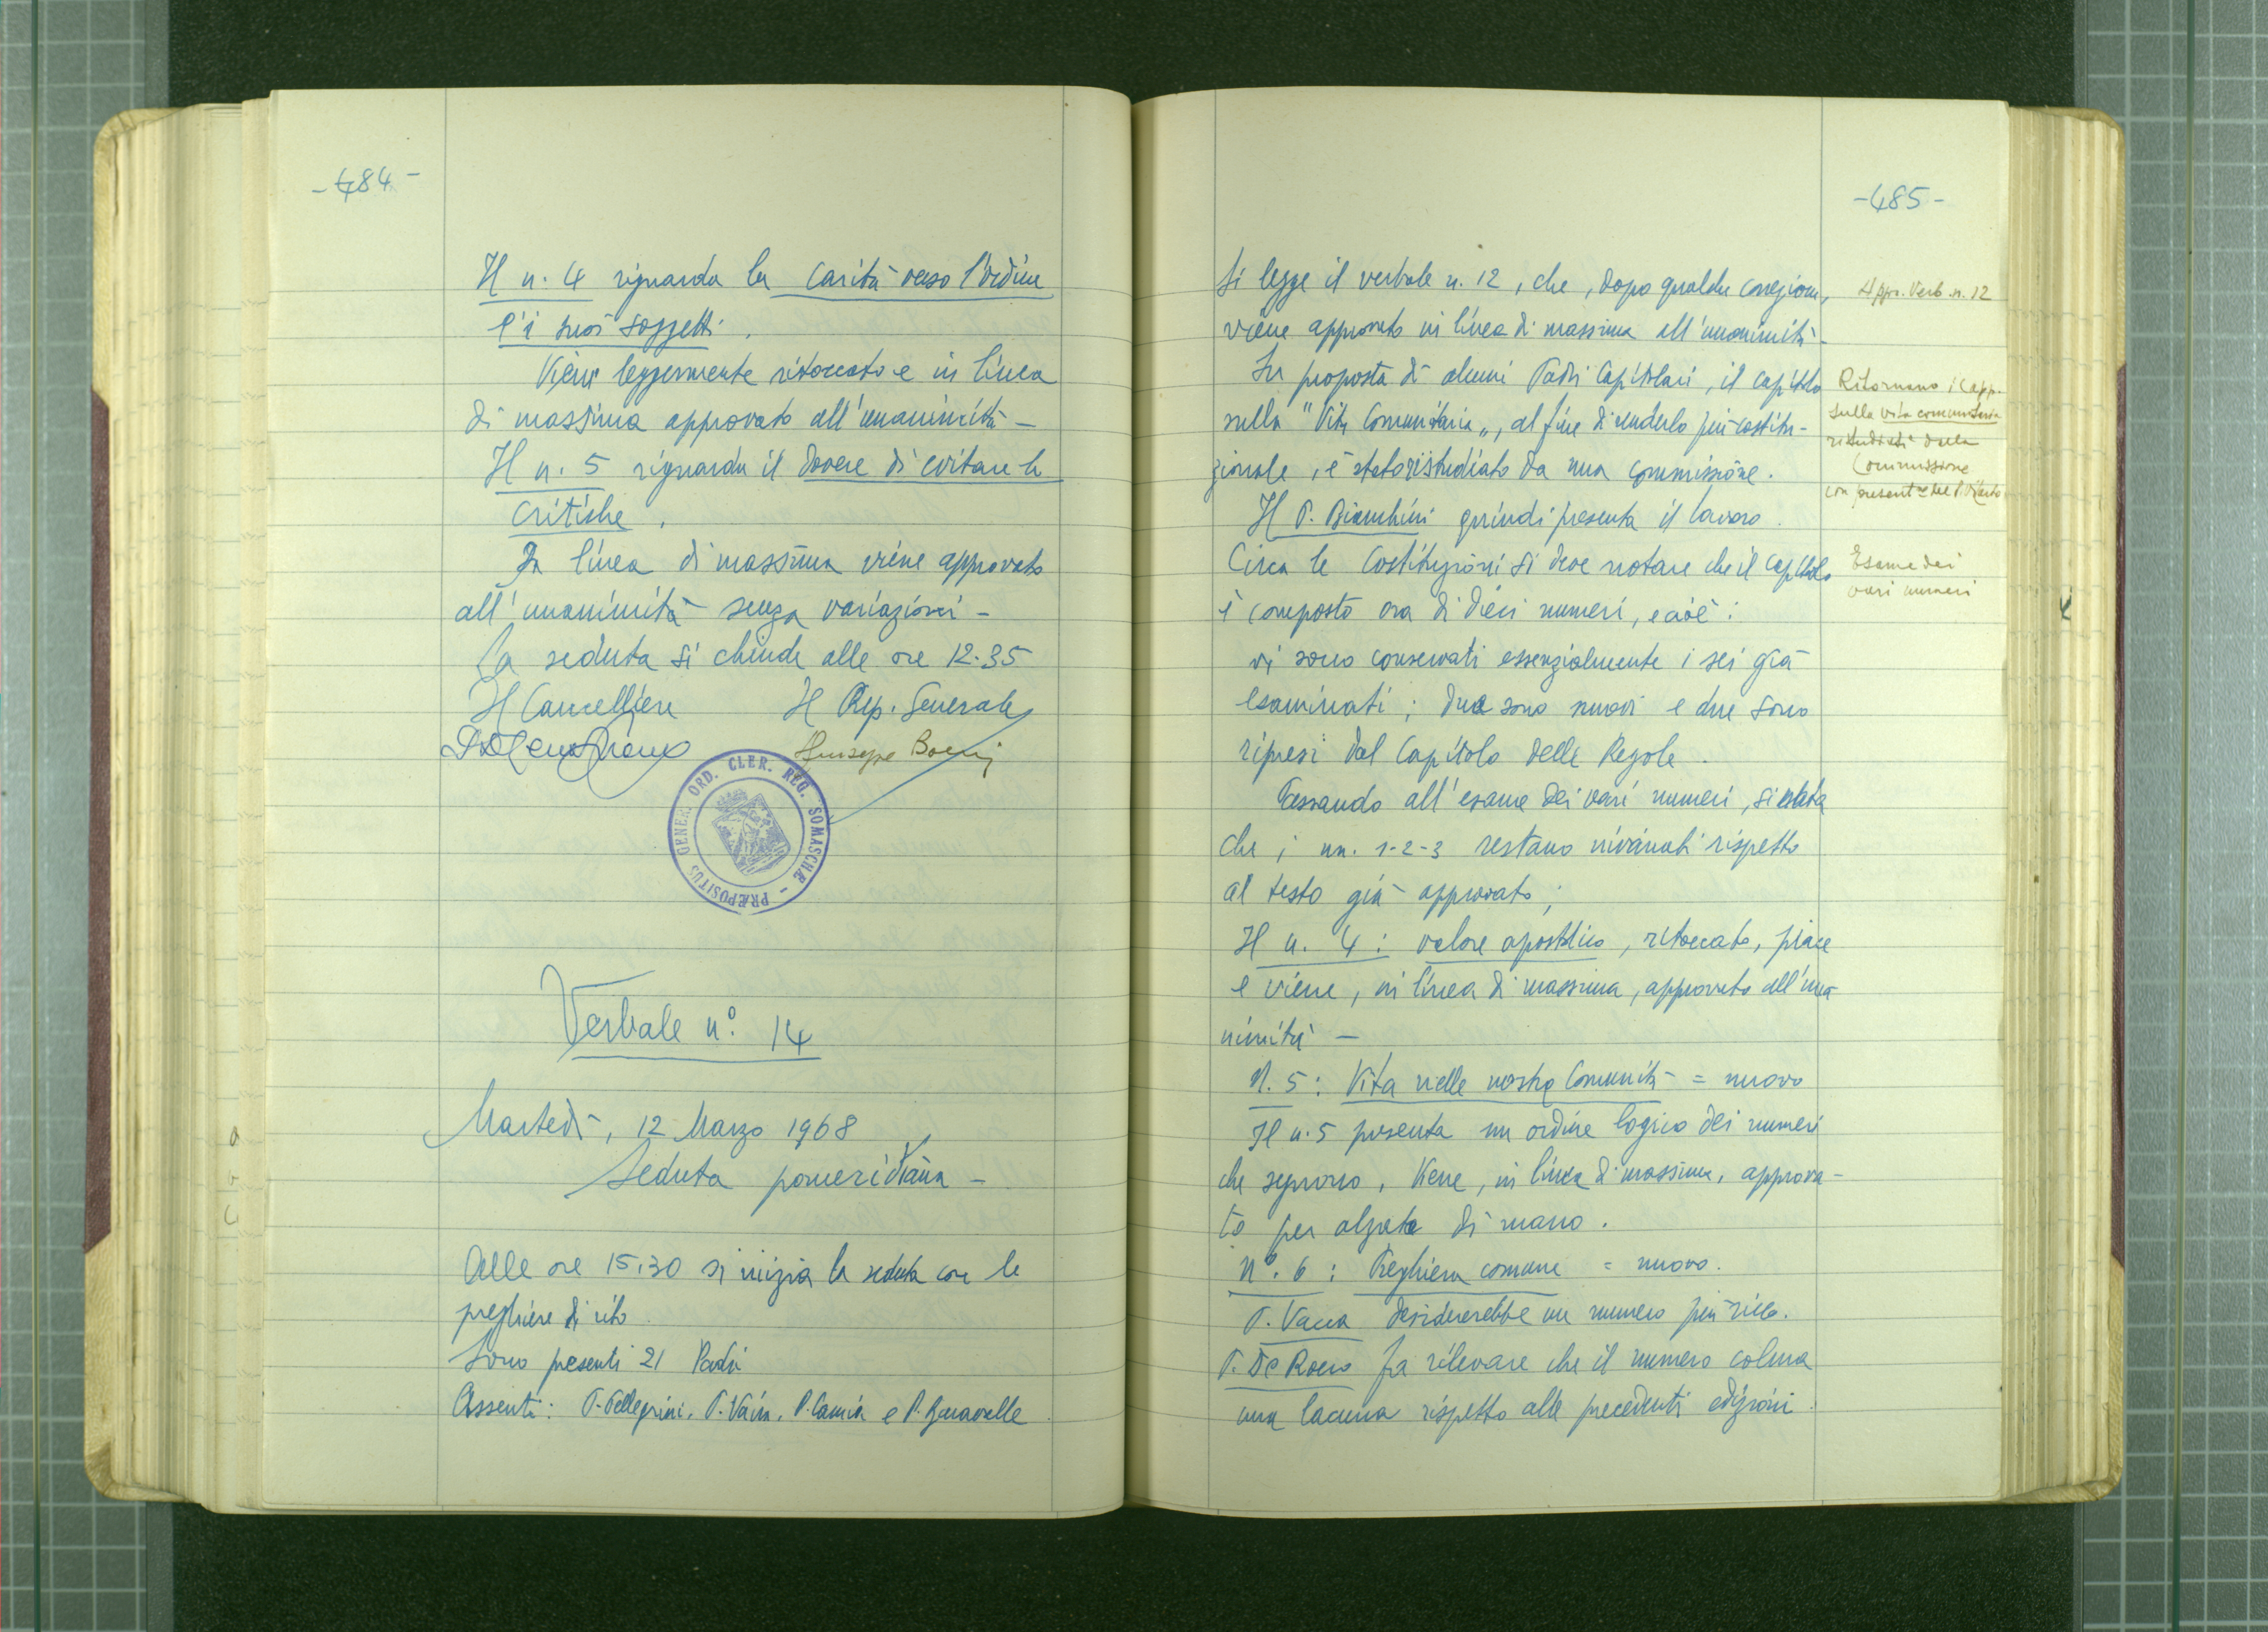 -484-
Il n. 4 riguarda la carità verso l'Ordine
e i suoi soggetti.
Viene leggermente ritoccato e in linea
di massima approvato all'unanimità -
Il n. 5 riguarda il dovere di evitare le
critiche.
In linea di massima viene approvato
all'unanimità senza variazioni -
La seduta si chiude alle ore 12.35
Il Cancelliere Il Rep. Generale
Giuseppe Boeris
PRÆPOSITUS GENER. ORD. CLER. REG. SOMASCHÆ -
Verbale n° 14
Martedì, 12 Marzo 1968
Seduta pomeridiana -
Alle ore 15,30 si inizia la seduta con le
preghiere di rito.
Sono presenti 21 Padri
Assenti: P. Pellegrini, P. Vaira, P. Camia e P.
-485-
Si legge il verbale n. 12, che, dopo qualche correzione,
viene approvato in linea di massima all'unanimità -
Su proposta di alcuni Padri Capitolari, il capitolo
sulla "Vita Comunitaria", al fine di renderlo più costitu-
zionale, è stato ristudiato da una commissione.
Il P. Bianchini quindi presenta il lavoro.
Circa le Costituzioni si deve notare che il capitolo
è composto ora di dieci numeri, e cioè:
vi sono conservati essenzialmente i sei già
esaminati; due sono nuovi e due sono
ripresi dal Capitolo delle Regole.
Passando all'esame dei vari numeri, si
che i nn. 1-2-3 restano invariati rispetto
al testo già approvato;
Il n. 4: valore apostolico, ritoccato, piace
e viene, in linea di massima, approvato all'una
nimità -
N. 5: Vita nelle nostre Comunità = nuovo
Il n. 5 presenta un ordine logico dei numeri
che seguono. Viene, in linea di massima, approva-
to per alzata di mano.
N°. 6: Preghiera comune = nuovo.
P. Vacca desidererebbe un numero più ricco.
P. De Rocco fa rilevare che il numero colma
una lacuna rispetto alle precedenti edizioni.
Appr. Verb. n. 12
Ritornano i Capp.
sulla vita comunitaria
ristudiati dalla
Commissione
con present.ne del P.
Esame dei
vari numeri